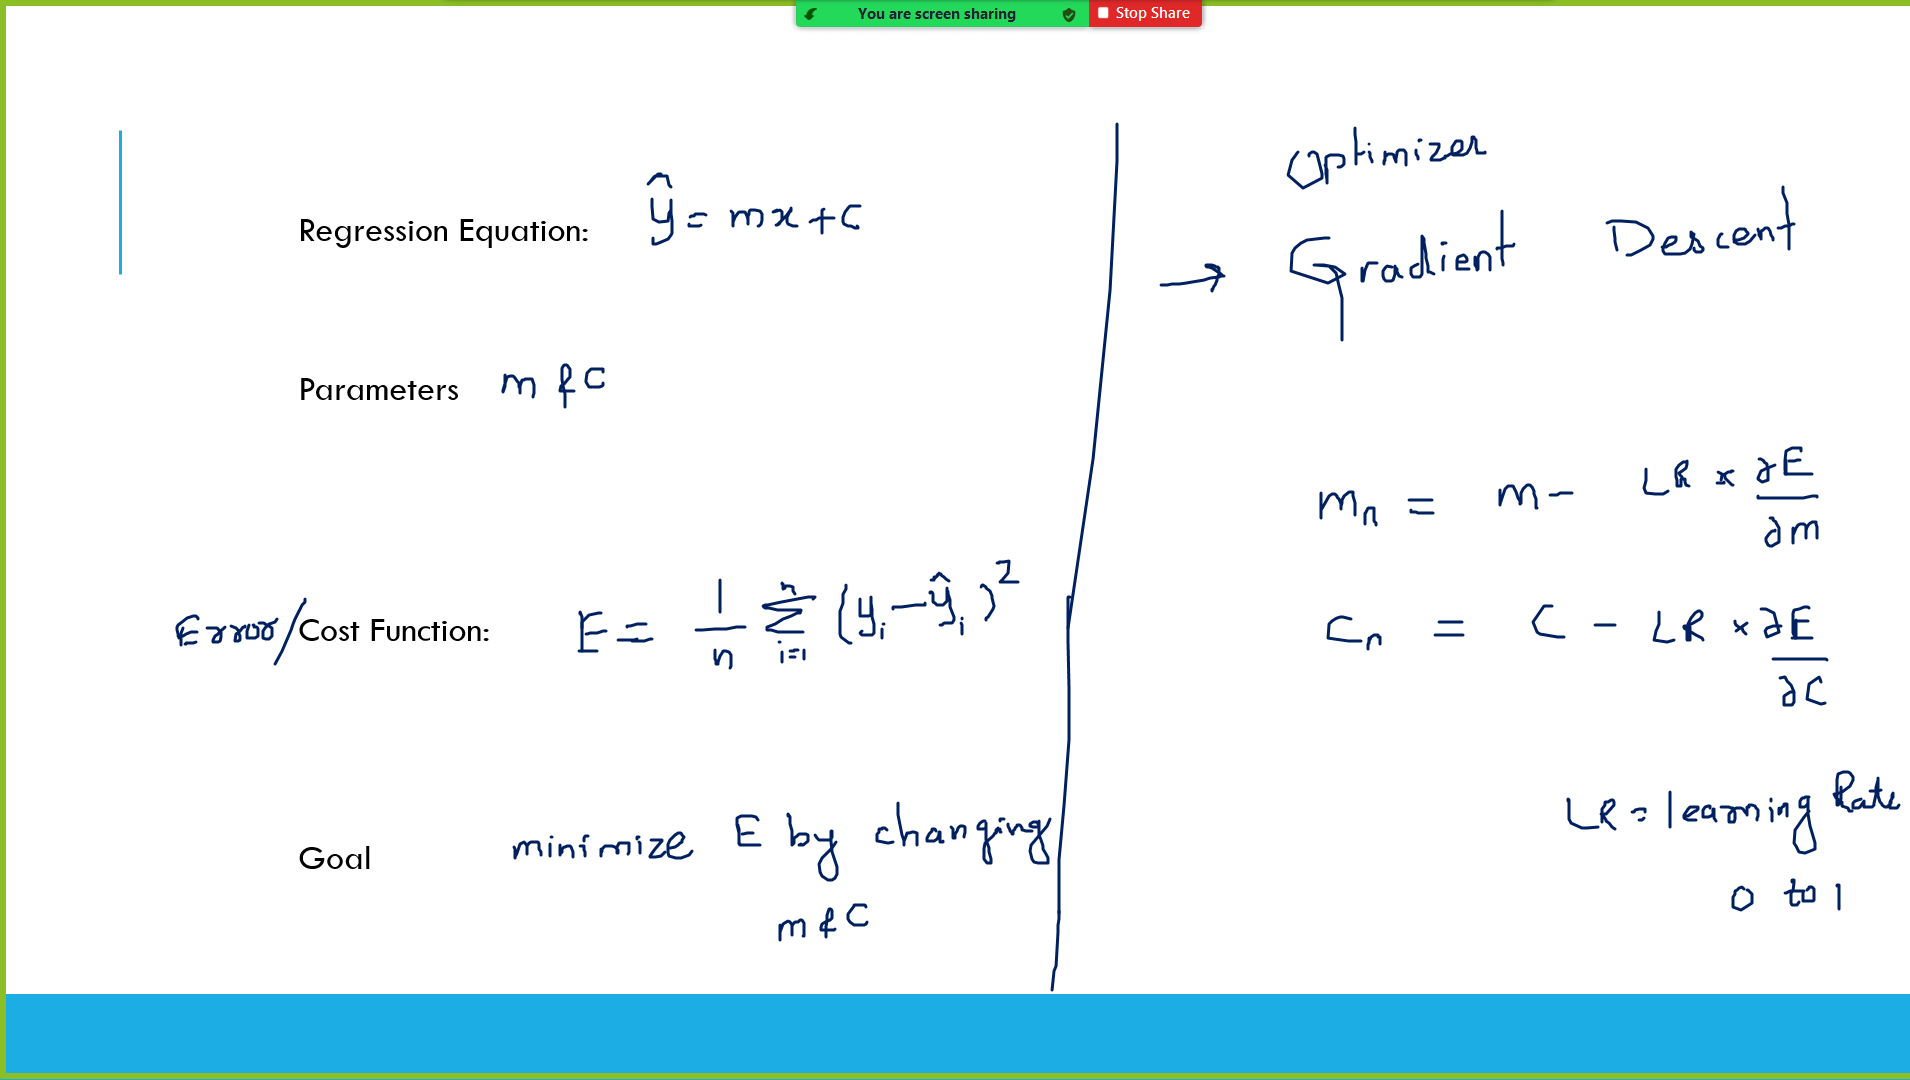 You are screen sharing
Stop Share
Regression Equation: ŷ = mx + c
Parameters m & c
Error/Cost Function: E = 1/n Σ i=1 n (yᵢ − ŷᵢ)²
Goal minimize E by changing
m & c
Optimizer
→ Gradient Descent
mₙ = m − LR × ∂E/∂m
cₙ = c − LR × ∂E/∂c
LR = learning Rate
0 to 1